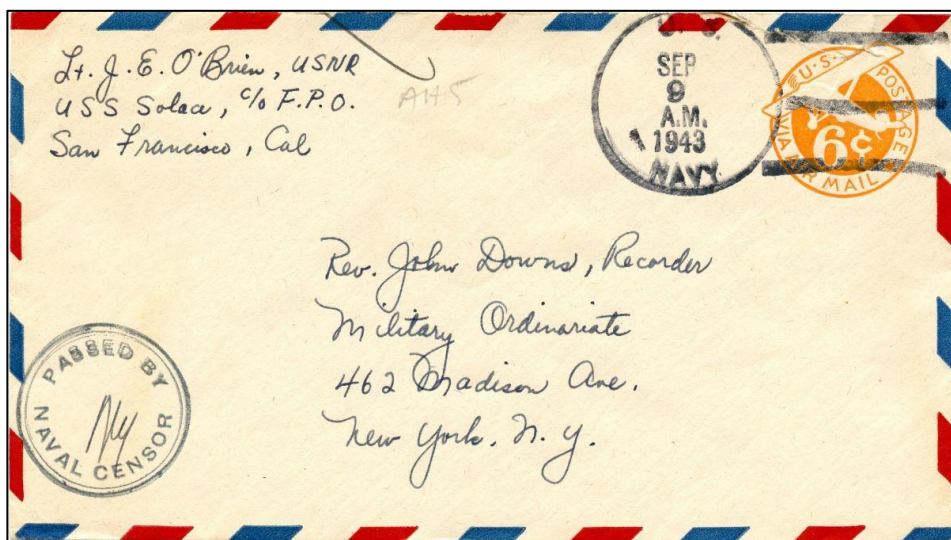 Lt. J. E. O'Brien, USNR
USS Solace, c/o F.P.O.
San Francisco, Cal
AH5
U. S.
SEP
9
A.M.
1943
NAVY
U.S. POSTAGE
6¢
VIA AIR MAIL
Rev. John Downs, Recorder
Military Ordinariate
462 Madison Ave.
New York. N. Y.
PASSED BY
NAVAL CENSOR